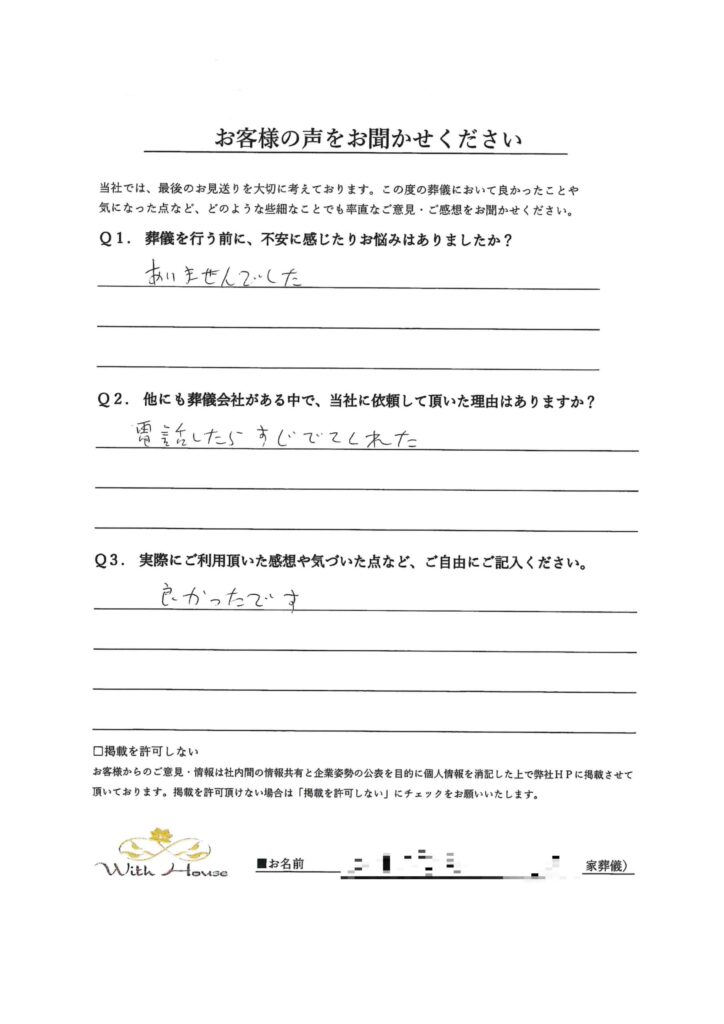 お客様の声をお聞かせください
当社では、最後のお見送りを大切に考えております。この度の葬儀において良かったことや
気になった点など、どのような些細なことでも率直なご意見・ご感想をお聞かせください。
Q1. 葬儀を行う前に、不安に感じたりお悩みはありましたか？
ありませんでした
Q2. 他にも葬儀会社がある中で、当社に依頼して頂いた理由はありますか？
電話したらすぐでてくれた
Q3. 実際にご利用頂いた感想や気づいた点など、ご自由にご記入ください。
良かったです
□掲載を許可しない
お客様からのご意見・情報は社内間の情報共有と企業姿勢の公表を目的に個人情報を消記した上で弊社HPに掲載させて
頂いております。掲載を許可頂けない場合は「掲載を許可しない」にチェックをお願いいたします。
With House
■お名前 家葬儀）